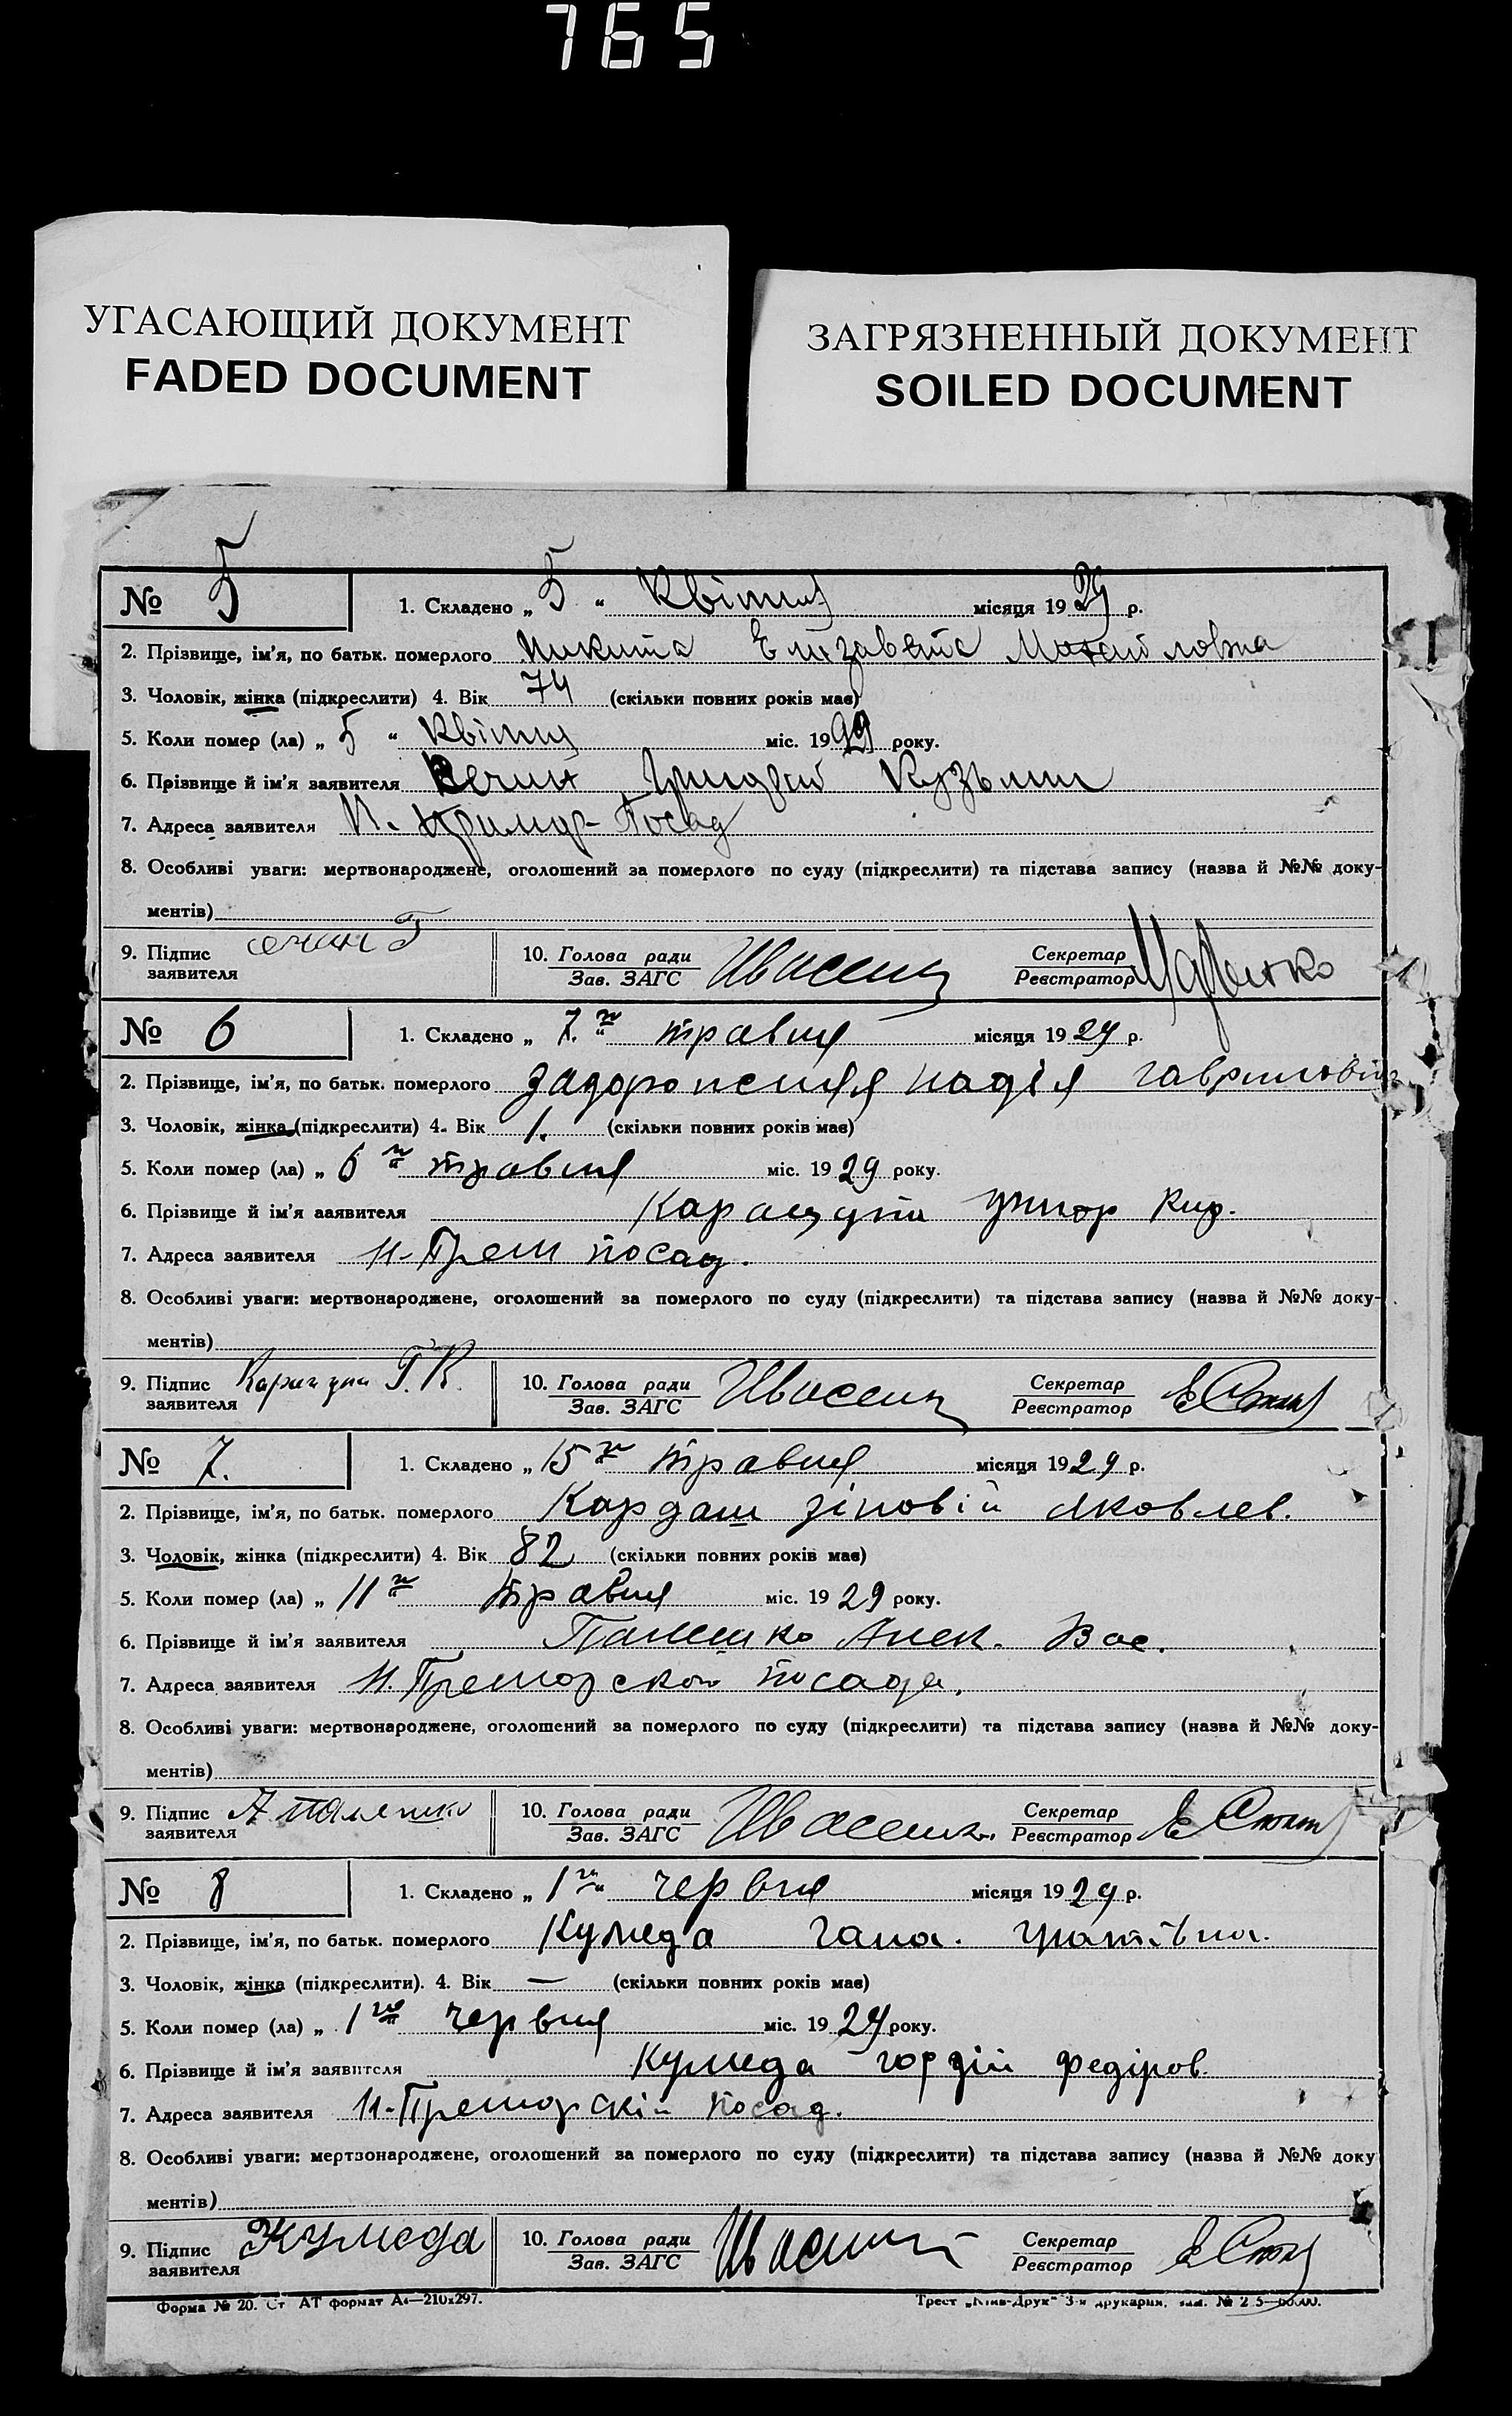 765
УГАСАЮЩИЙ ДОКУМЕНТ
FADED DOCUMENT
ЗАГРЯЗНЕННЫЙ ДОКУМЕНТ
SOILED DOCUMENT
№ 5 1. Складено „ 5 “ Квітня місяця 1929 р.
2. Прізвище, ім'я, по батьк. померлого Никита Елізавета
3. Чоловік, жінка (підкреслити) 4. Вік 74 (скільки повних років має)
5. Коли помер (ла) „ 5 “ Квітня міс. 1929 року.
6. Прізвище й ім'я заявителя Кузьмич
7. Адреса заявителя Н. Примор- Посад
8. Особливі уваги: мертвонароджене, оголошений за померлого по суду (підкреслити) та підстава запису (назва й №№ доку-
ментів)
9. Підпис заявителя 10. Голова ради Зав. ЗАГС Секретар Реєстратор
№ 6 1. Складено „ 7го “ травня місяця 1929 р.
2. Прізвище, ім'я, по батьк. померлого Задорожня надія гавриловна
3. Чоловік, жінка (підкреслити) 4. Вік 1. (скільки повних років має)
5. Коли помер (ла) „ 6го “ травня міс. 1929 року.
6. Прізвище й ім'я заявителя Кир.
7. Адреса заявителя Н-Прем посад.
8. Особливі уваги: мертвонароджене, оголошений за померлого по суду (підкреслити) та підстава запису (назва й №№ доку-
ментів)
9. Підпис заявителя Г. К. 10. Голова ради Зав. ЗАГС Секретар Реєстратор
№ 7. 1. Складено „ 15го “ травня місяця 1929 р.
2. Прізвище, ім'я, по батьк. померлого Кардаш зіновій Яковлев.
3. Чоловік, жінка (підкреслити) 4. Вік 82 (скільки повних років має)
5. Коли помер (ла) „ 11го “ травня міс. 1929 року.
6. Прізвище й ім'я заявителя Алек. Вас.
7. Адреса заявителя Н. Преморской посада.
8. Особливі уваги: мертвонароджене, оголошений за померлого по суду (підкреслити) та підстава запису (назва й №№ доку-
ментів)
9. Підпис заявителя 10. Голова ради Зав. ЗАГС Секретар Реєстратор
№ 8 1. Складено „ 1го “ червня місяця 1929 р.
2. Прізвище, ім'я, по батьк. померлого Кумеда гана. гнатівна.
3. Чоловік, жінка (підкреслити). 4. Вік — (скільки повних років має)
5. Коли помер (ла) „ 1го “ червня міс. 1929 року.
6. Прізвище й ім'я заявителя Кумеда гордій федіров.
7. Адреса заявителя Н-Преморскій посад.
8. Особливі уваги: мертвонароджене, оголошений за померлого по суду (підкреслити) та підстава запису (назва й №№ доку
ментів)
9. Підпис заявителя Кумеда 10. Голова ради Зав. ЗАГС Секретар Реєстратор
Форма № 20. Ст АТ формат А4—210х297. Трест „Київ-Друк“ 3-я друкарня,